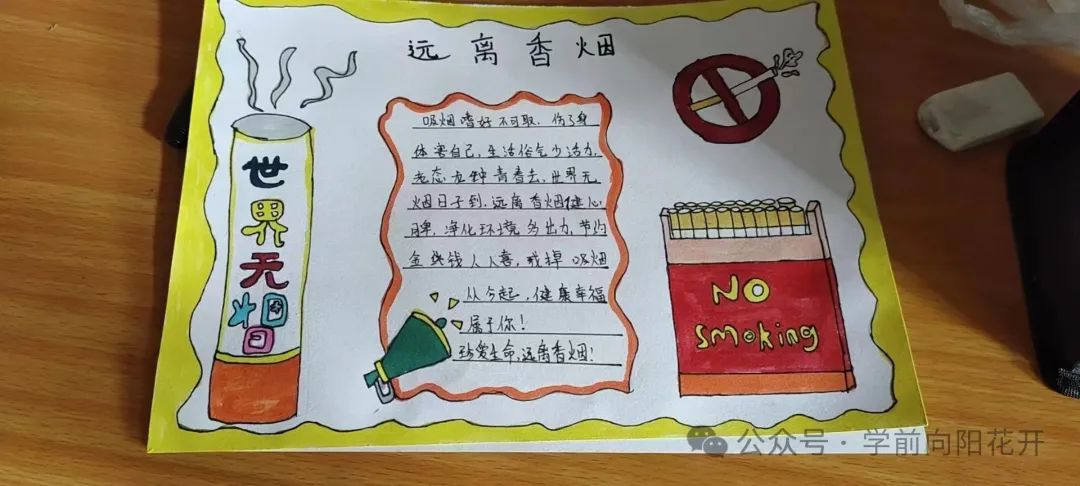 远离香烟
世
界
无
烟
日
吸烟嗜好不可取,伤了身
体害自己,生活俗气少活力,
老态龙钟青春去,世界无
烟日子到,远离香烟健心
脾,净化环境多出力,节约
金钱人人喜,戒掉吸烟
从今起,健康幸福
属于你!
珍爱生命,远离香烟!
NO
smoking
公众号·学前向阳花开